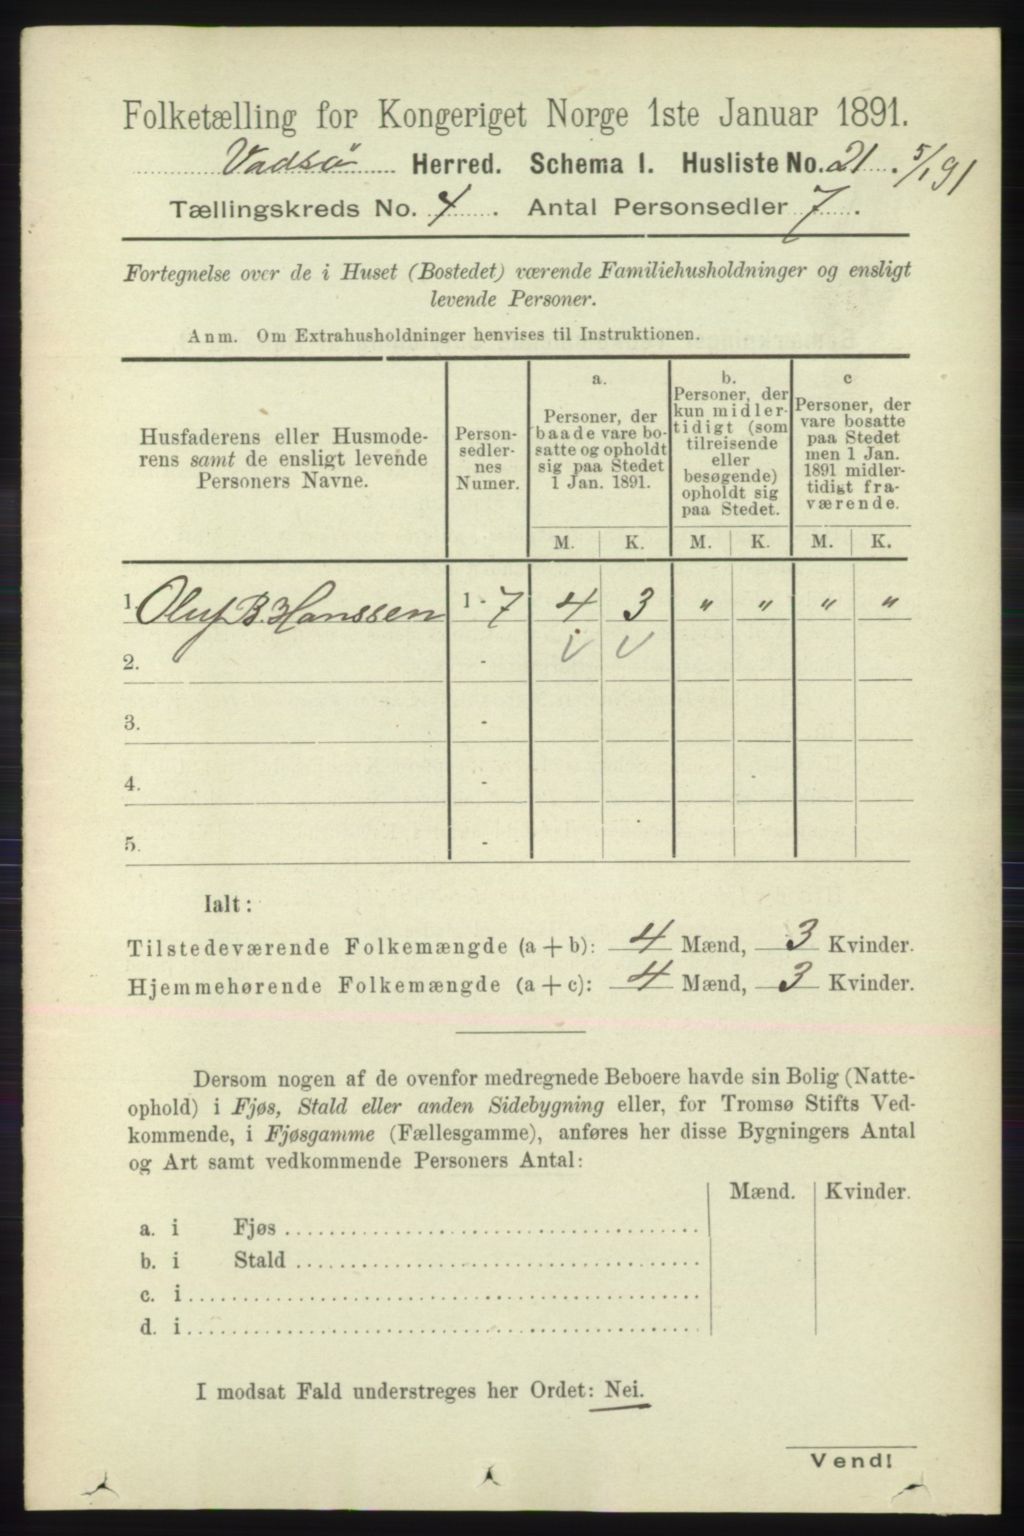 Folketælling for Kongeriget Norge 1ste Januar 1891.
Vadsø Herred. Schema I. Husliste No. 21. 5/1 91
Tællingskreds No. 4. Antal Personsedler 7.
Fortegnelse over de i Huset (Bostedet) værende Familiehusholdninger og ensligt
levende Personer.
Anm. Om Extrahusholdninger henvises til Instruktionen.
Husfaderens eller Husmode-
rens samt de ensligt levende
Personers Navne.
Person-
sedler-
nes
Numer.
a.
Personer, der
baade vare bo-
satte og opholdt
sig paa Stedet
1 Jan. 1891.
b.
Personer, der
kun midler-
tidigt (som
tilreisende
eller
besøgende)
opholdt sig
paa Stedet.
c
Personer, der
vare bosatte
paa Stedet
men 1 Jan.
1891 midler-
tidigt fra-
værende.
M. K. M. K. M. K.
1. Oluf B. Hanssen 1-7 4 3 " " " "
2. -
3. -
4. -
5. -
Ialt:
Tilstedeværende Folkemængde (a+b): 4 Mænd, 3 Kvinder.
Hjemmehørende Folkemængde (a+c): 4 Mænd, 3 Kvinder.
Dersom nogen af de ovenfor medregnede Beboere havde sin Bolig (Natte-
ophold) i Fjøs, Stald eller anden Sidebygning eller, for Tromsø Stifts Ved-
kommende, i Fjøsgamme (Fællesgamme), anføres her disse Bygningers Antal
og Art samt vedkommende Personers Antal:
Mænd. Kvinder.
a. i Fjøs
b. i Stald
c. i
d. i
I modsat Fald understreges her Ordet: Nei.
Vend!